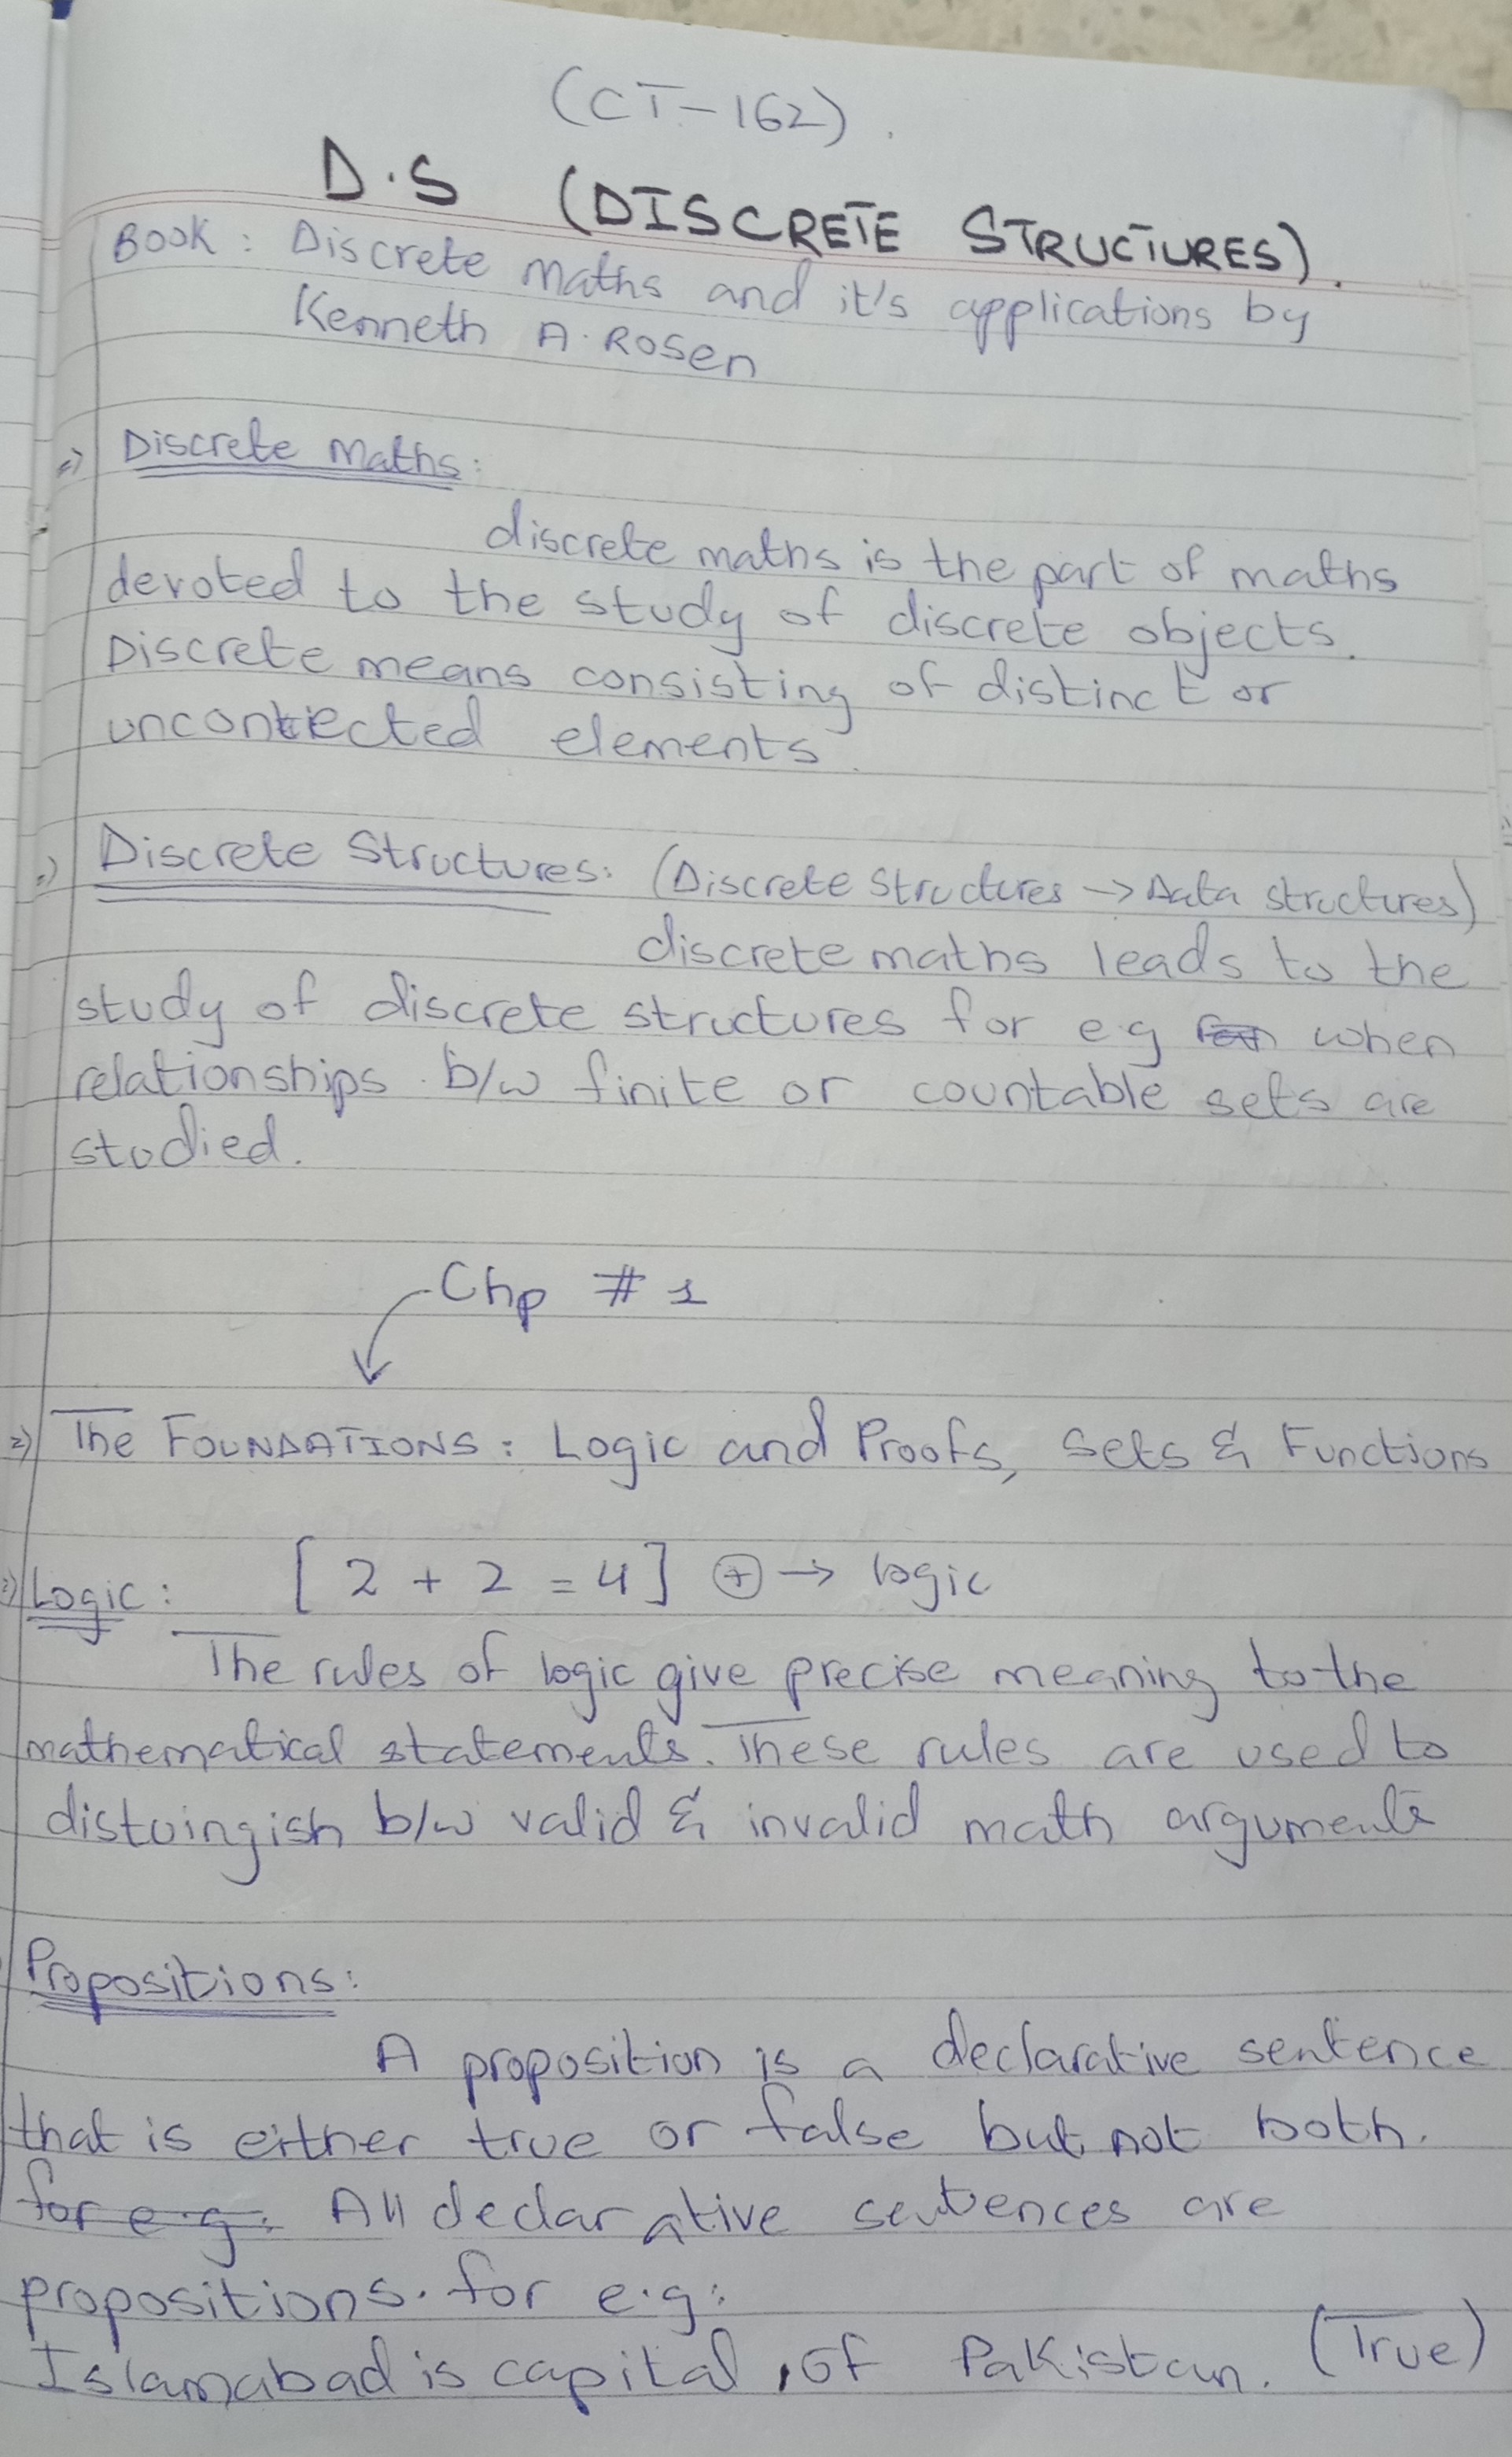 (CT-162).
D.S (DISCRETE STRUCTURES).
BOOK: Discrete maths and it's applications by
Kenneth A. Rosen
Discrete Maths:
discrete maths is the part of maths
devoted to the study of discrete objects.
Discrete means consisting of distinct or
unconnected elements.
Discrete Structures: (Discrete structures → Data structures)
discrete maths leads to the
study of discrete structures for e.g when
relationships b/w finite or countable sets are
studied.
Chp # 1
2) The FOUNDATIONS: Logic and Proofs, Sets & Functions
Logic: [2 + 2 = 4] ⊕ → logic
The rules of logic give precise meaning to the
mathematical statements. These rules are used to
distuingish b/w valid & invalid math arguments
Propositions:
A proposition is a declarative sentence
that is either true or false but not both.
for e.g: All declarative sentences are
propositions. for e.g:
Islamabad is capital of Pakistan. (True)